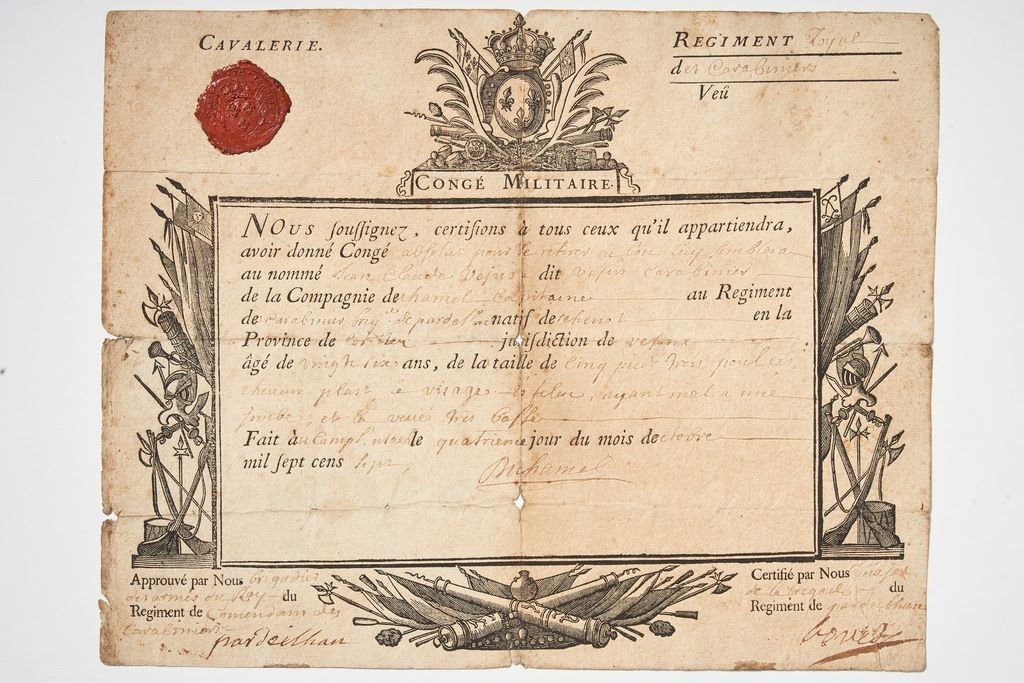 CAVALERIE.
REGIMENT Royal
des Carabiniers
Veû
CONGÉ MILITAIRE.
NOUS ſouſſignez, certifions à tous ceux qu'il appartiendra,
avoir donné Congé absolut pour se retirer ou bon luy semblera
au nommé Jean Claude dit carabinier
de la Compagnie de hamel Capitaine au Regiment
de carabiniers natif de en la
Province de juriſdiction de
âgé de vingt six ans, de la taille de Cinq pieds trois
cheveux plast le visage ayant mal a une
jambe, et la veue tres basse
Fait à le quatrieme jour du mois de
mil ſept cens sept Duhamel
Approuvé par Nous brigadier
des armées du Roy du
Regiment de Comendant des
Carabiniers
pardeilhan
Certifié par Nous major
de la brigade du
Regiment de pardeilhan